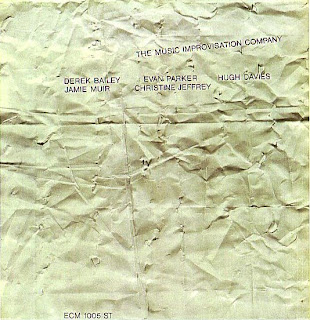 THE MUSIC IMPROVISATION COMPANY
DEREK BAILEY EVAN PARKER HUGH DAVIES
JAMIE MUIR CHRISTINE JEFFREY
ECM 1005 ST